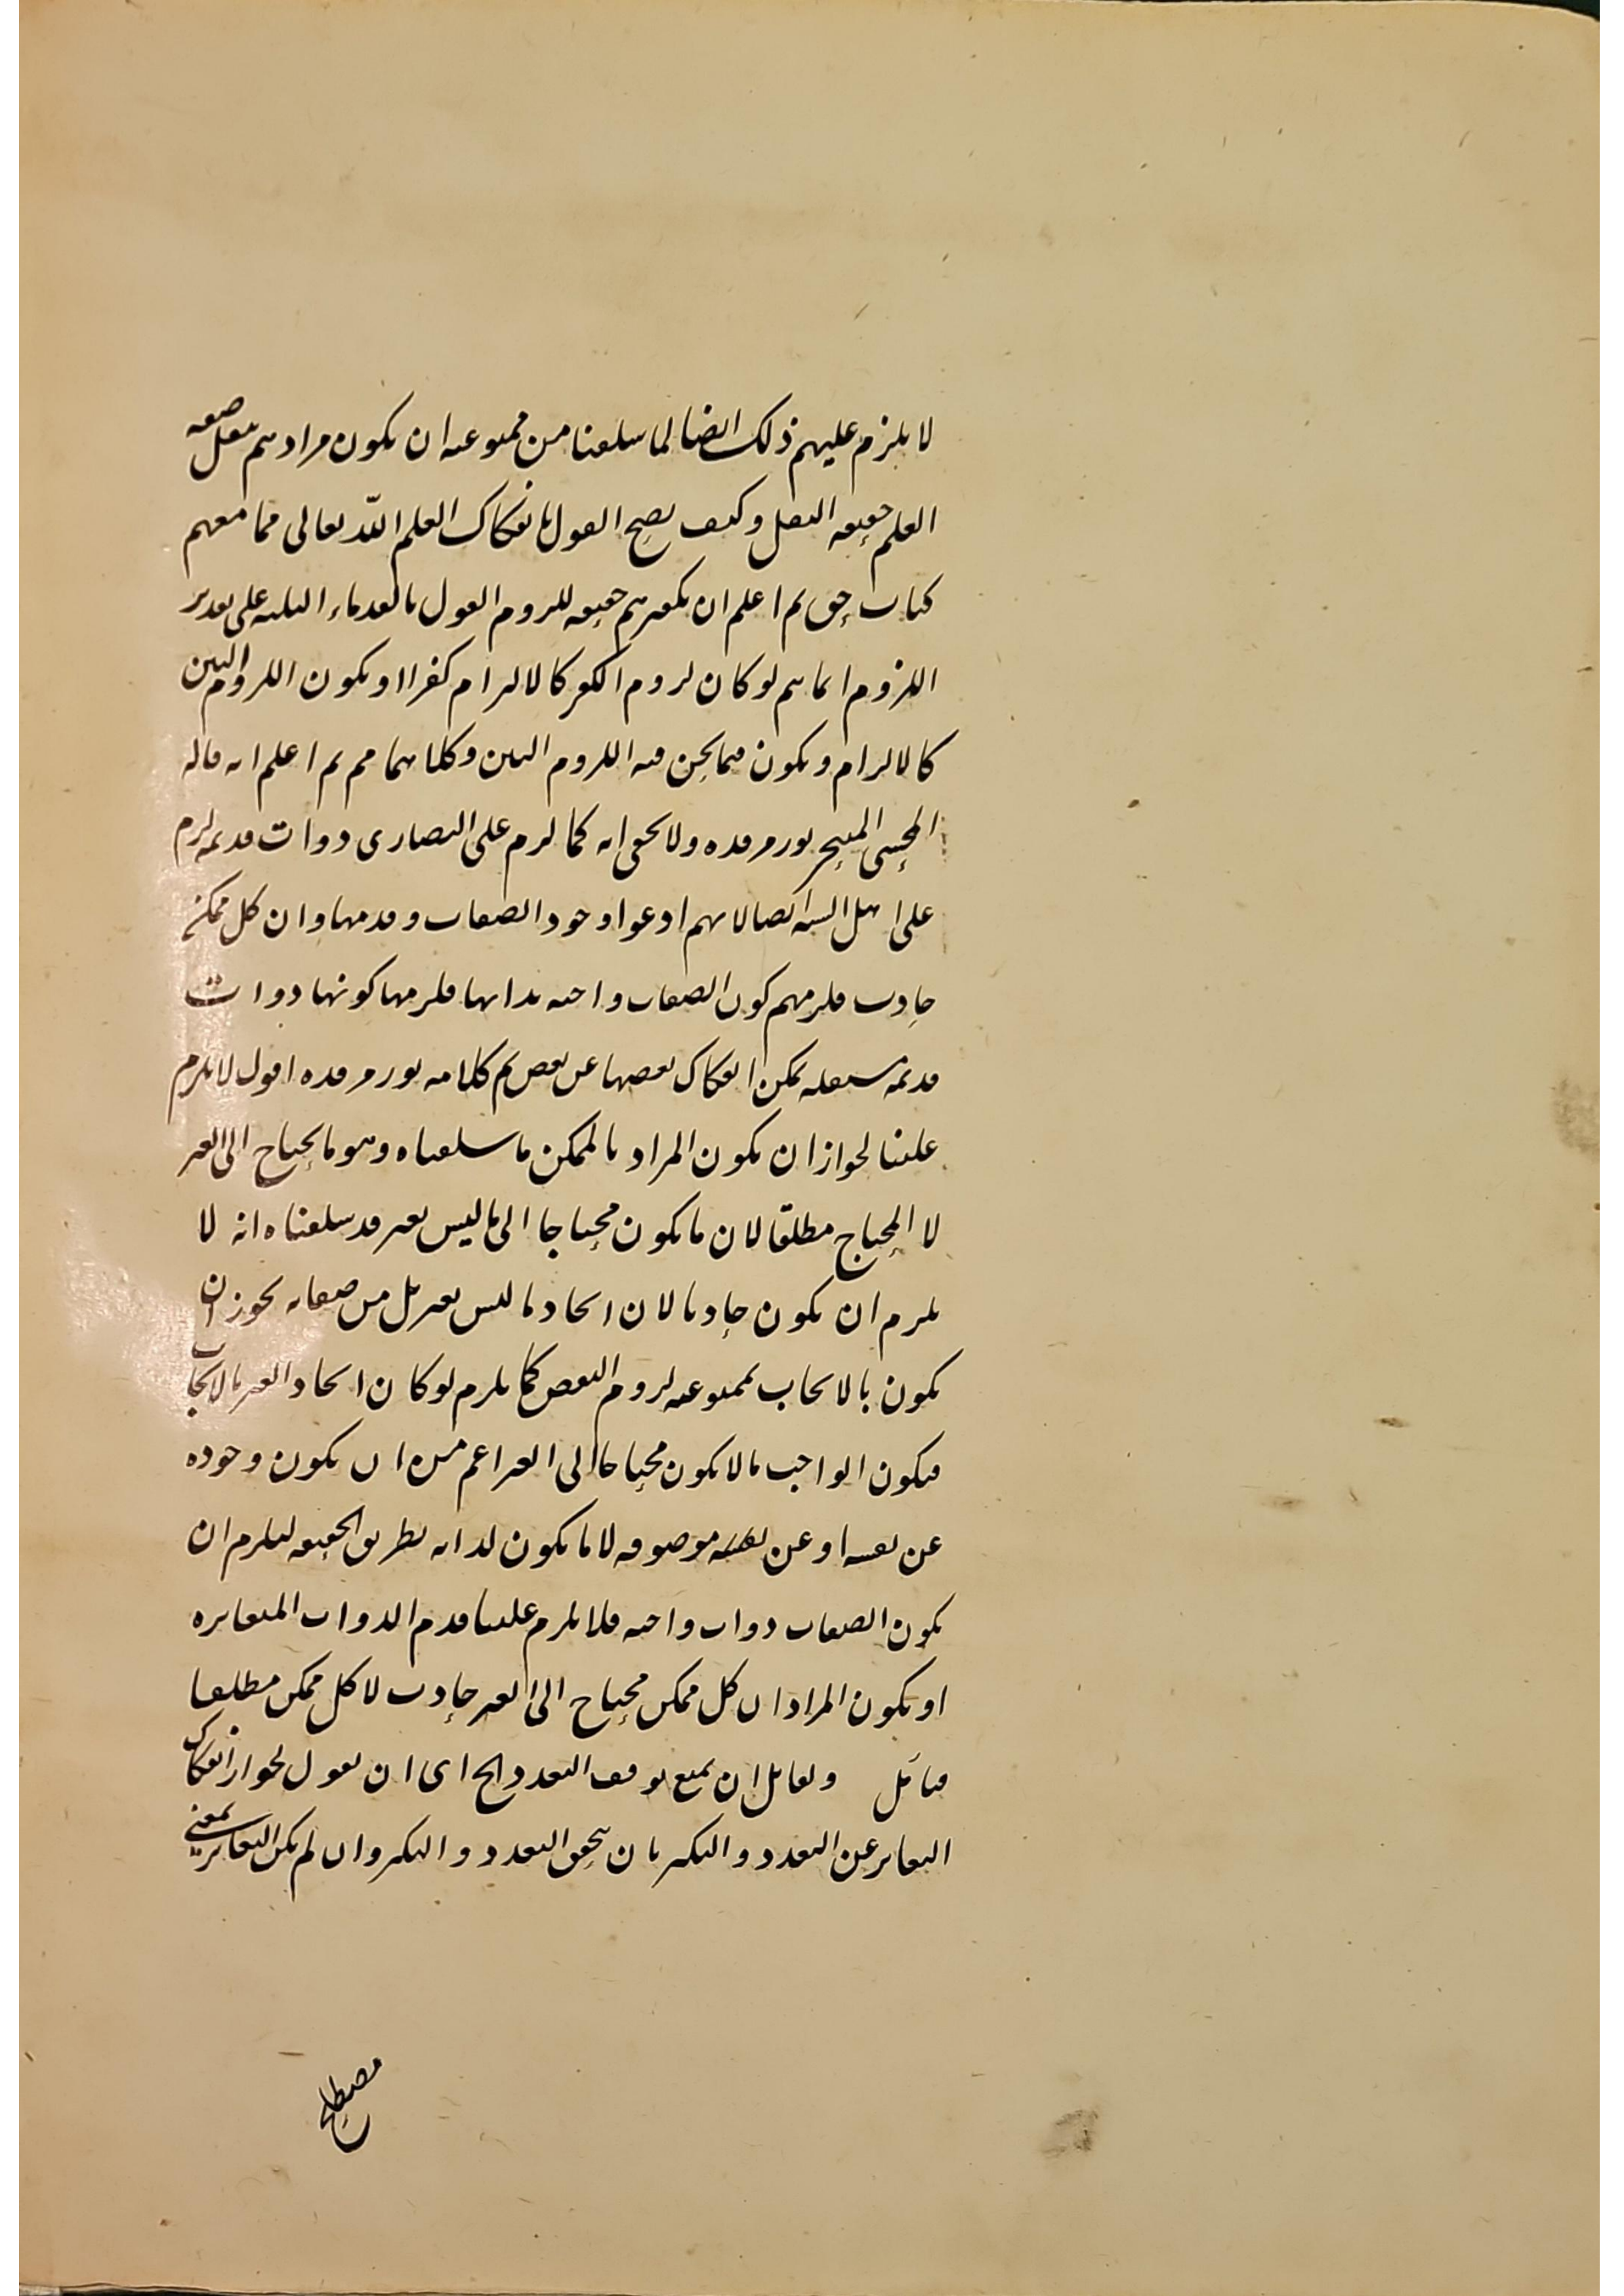 لا يلزم عليهم ذلك ايضا لما سلفنا من ممنوعيه ان يكون مرادهم بنقل صفه
العلم حقيقه النقل وكيف يصح القول بانفكاك العلم الله تعالى مما معهم
كتاب حق ثم اعلم ان تكفيرهم حقيقه للزوم القول بالقدماء الثلثه على تقدير
اللزوم انما يتم لو كان لزوم الكفر كالالتزام كفرا او يكون اللزوم البين
كالالتزام ويكون فيما نحن فيه اللزوم البين وكلاهما مم ثم اعلم انه قال
المحشى نور مرقده ولا يخفى انه كما لزم على النصارى ذوات قديمه لزم
على اهل السنه ايضا لانهم ادعوا وجود الصفات وقدمها وان كل ممكن
حادث فلزمهم كون الصفات واجبه بذاتها فلزمها كونها ذوات
قديمه مستقله يمكن انفكاك بعضها عن بعض تم كلامه نور مرقده اقول لا يلزم
علينا لجواز ان يكون المراد بالممكن ما سلفناه وهو ما يحتاج الى الغير
لا المحتاج مطلقا لان ما يكون محتاجا الى ما ليس بغير قد سلفناه انه لا
يلزم ان يكون حادثا لان ايجاد ما ليس بغير بل من صفاته يجوز ان
يكون بالايجاب بممنوعيه لزوم النقص كما يلزم لو كان ايجاد الغير بالايجاب
فيكون الواجب ما لا يكون محتاجا الى الغير اعم من ان يكون وجوده
عن نفسه او عن نفس موصوفه لا ما يكون لذاته بطريق الحقيقه ليلزم ان
يكون الصفات ذوات واجبه فلا يلزم علينا قدم الذوات المتغايره
او يكون المراد ان كل ممكن محتاج الى الغير حادث لا كل ممكن مطلقا
فتأمل ولقائل ان يمنع توقف التعدد الخ اى ان نقول لجواز انفكاك
التغاير عن التعدد والتكثر بان يتحقق التعدد والتكثر وان لم يكن التغاير بمعنى
مصطلح